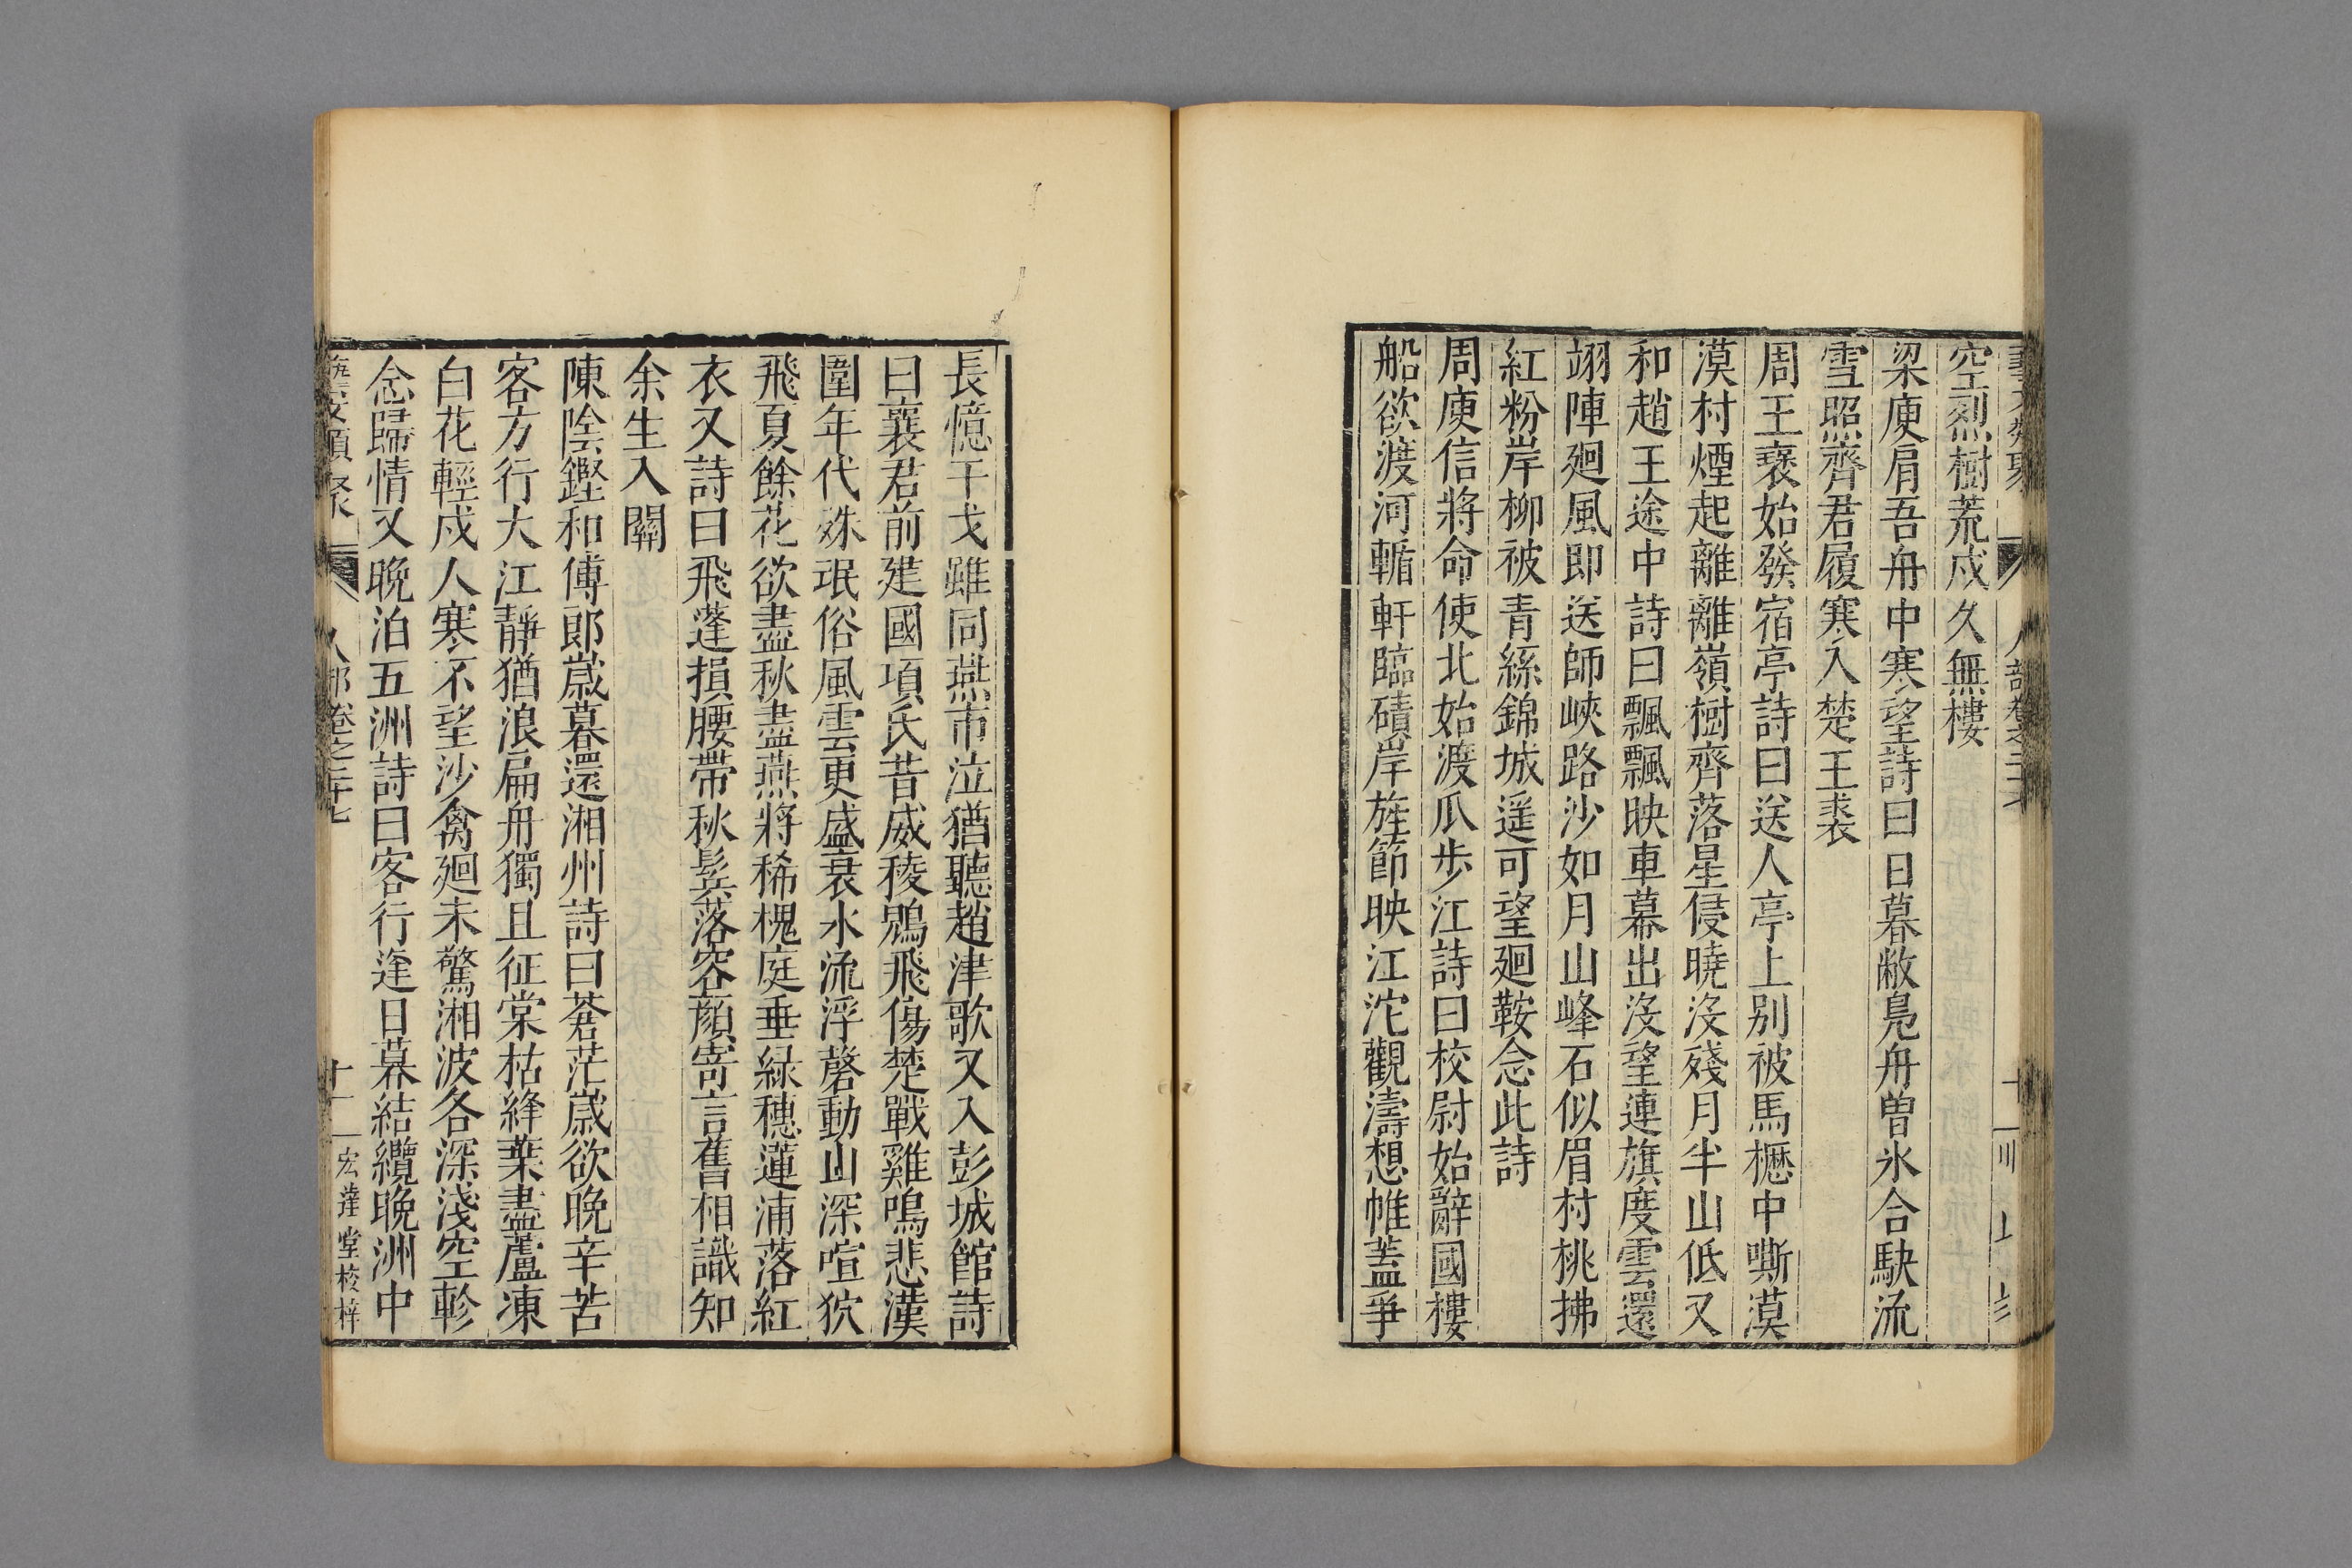 空烈樹荒戍久無樓
梁庾肩吾舟中寒望詩曰日暮敝鳬舟曽氷合駃流
雪照齊君履寒入楚王裘
周王襃始發宿亭詩曰送人亭上别被馬櫪中嘶漠
漠村煙起離離嶺樹齊落星侵曉没殘月半山低又
和趙王途中詩曰飄飄映車幕出没望連旗度雲還
翊陣廻風即送師峽路沙如月山峰石似眉村桃拂
紅粉岸柳被青絲錦城遥可望廻鞍念此詩
周庾信將命使北始渡瓜步江詩曰校尉始辭國樓
船欲渡河輴軒臨磧岸旌節映江沱觀濤想帷蓋爭
長憶干戈雖同燕市泣猶聽趙津歌又入彭城館詩
曰襄君前建國項氏昔威稜鴻飛傷楚戰雞鳴悲漢
圍年代殊珉俗風雲更盛衰水流浮磬動山深喧狖
飛夏餘花欲盡秋盡燕將稀槐庭垂緑穗蓮浦落紅
衣又詩曰飛蓬損腰帶秋鬂落容顔寄言舊相識知
余生入關
陳陰鏗和傅郎歲暮還湘州詩曰蒼茫歲欲晚辛苦
客方行大江靜猶浪扁舟獨且征棠枯絳葉盡蘆凍
白花輕戍人寒不望沙禽廻未驚湘波各深淺空軫
念歸情又晚泊五洲詩曰客行逢日暮結纜晚洲中
人部卷之二十七
十一
宏達堂校梓